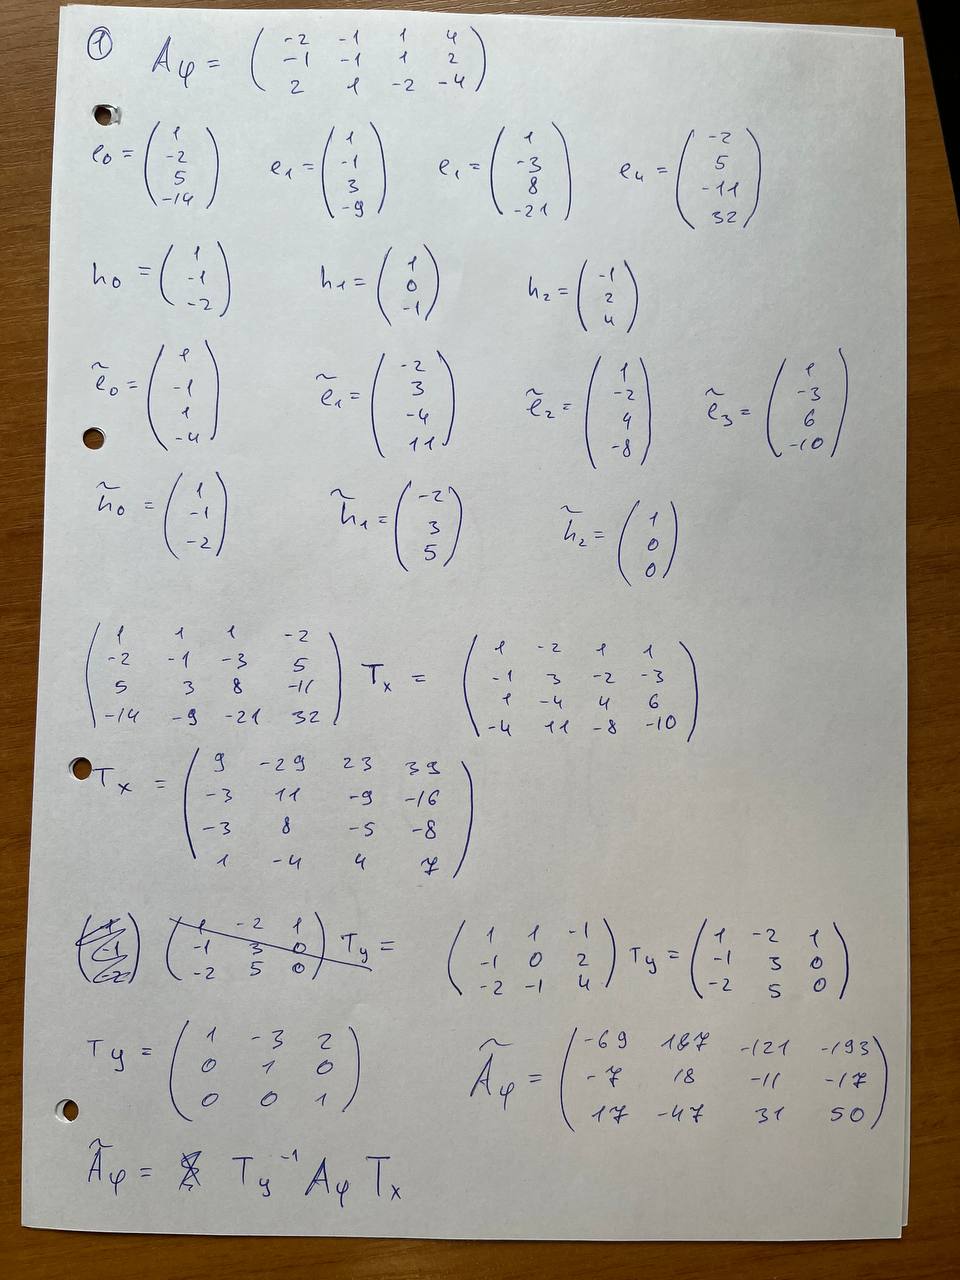 ① Aφ = ( -2 -1 1 4
-1 -1 1 2
2 1 -2 -4 )
e₀ = ( 1 -2 5 -14 ) e₁ = ( 1 -1 3 -9 ) e₁ = ( 1 -3 8 -21 ) e₄ = ( -2 5 -11 32 )
h₀ = ( 1 -1 -2 ) h₁ = ( 1 0 -1 ) h₂ = ( -1 2 4 )
ẽ₀ = ( 1 -1 1 -4 ) ẽ₁ = ( -2 3 -4 11 ) ẽ₂ = ( 1 -2 4 -8 ) ẽ₃ = ( 1 -3 6 -10 )
h̃₀ = ( 1 -1 -2 ) h̃₁ = ( -2 3 5 ) h̃₂ = ( 1 0 0 )
( 1 1 1 -2
-2 -1 -3 5
5 3 8 -11
-14 -9 -21 32 ) Tx = ( 1 -2 1 1
-1 3 -2 -3
1 -4 4 6
-4 11 -8 -10 )
Tx = ( 9 -29 23 39
-3 11 -9 -16
-3 8 -5 -8
1 -4 4 7 )
( 1 -1 -2 ) ( 1 -2 1
-1 3 0
-2 5 0 ) Ty = ( 1 1 -1
-1 0 2
-2 -1 4 ) Ty = ( 1 -2 1
-1 3 0
-2 5 0 )
Ty = ( 1 -3 2
0 1 0
0 0 1 )
Ãφ = ( -69 187 -121 -193
-7 18 -11 -17
17 -47 31 50 )
Ãφ = Ty⁻¹ Aφ Tx